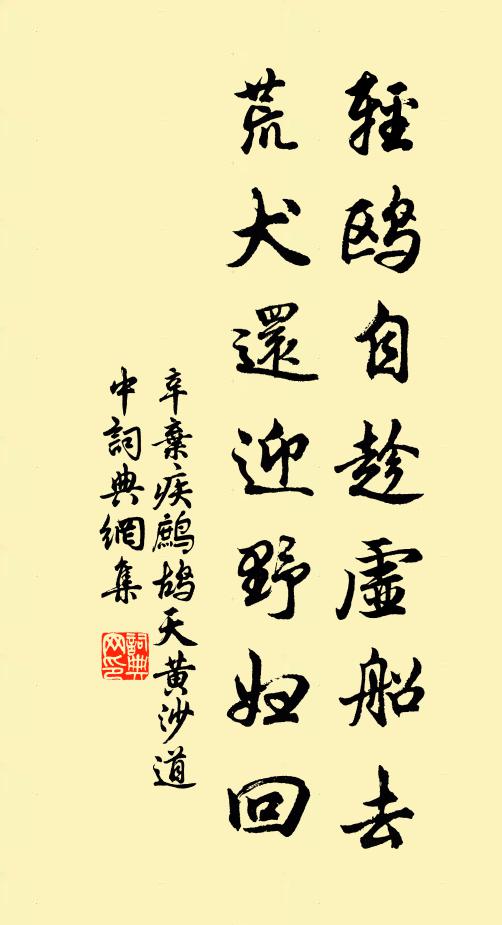 輕鷗自趁虛船去
荒犬還迎野妇回
辛棄疾鷓鴣天黄沙道
中詞典網集
詞典
网印